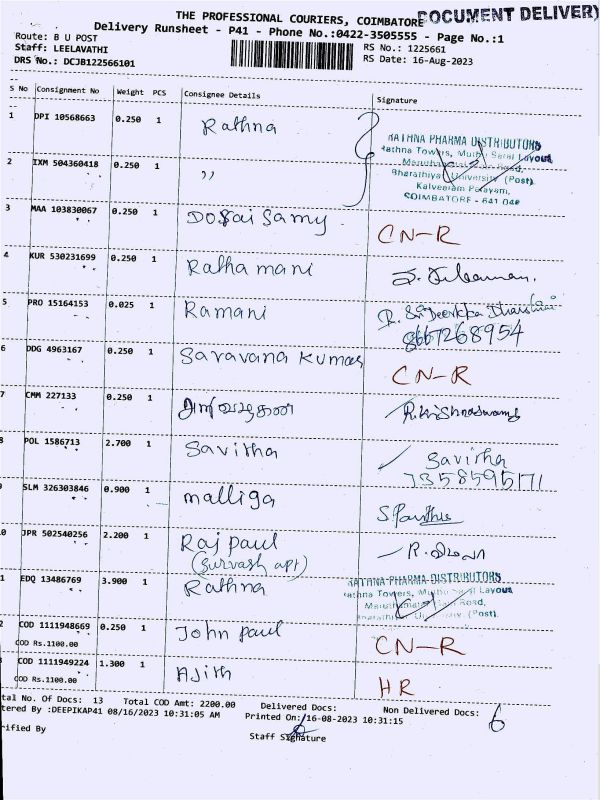 THE PROFESSIONAL COURIERS, COIMBATORE DOCUMENT DELIVERY
Delivery Runsheet - P41 - Phone No.:0422-3505555 - Page No.:1
Route: B U POST
Staff: LEELAVATHI RS No.: 1225661
DRS No.: DCJB122566101 RS Date: 16-Aug-2023
S No Consignment No Weight PCS Consignee Details Signature
1 DPI 10568663 0.250 1 Rathna
RATHNA PHARMA DISTRIBUTORS
Rathna Towers, Muthu Layout,
Road,
Bharathiyar University (Post).
Kalveeram Palayam,
COIMBATORE - 641 046
2 IXM 504360418 0.250 1 ,,
3 MAA 103830067 0.250 1 Dossai Samy CN-R
4 KUR 530231699 0.250 1 Ratha mani
5 PRO 15164153 0.025 1 Ramani
8667268954
6 DDG 4963167 0.250 1 Saravana Kumar CN-R
7 CMM 227133 0.250 1 R.Krishnaswamy
8 POL 1586713 2.700 1 Savitha Savitha
7358595171
9 SLM 326303846 0.900 1 malliga
10 JPR 502540256 2.200 1 Raj paul
(Survash apt)
11 EDQ 13486769 3.900 1 Rathna
RATHNA PHARMA DISTRIBUTORS
Rathna Towers, Layout
Road,
(Post).
12 COD 1111948669 0.250 1 John paul CN-R
COD Rs.1100.00
13 COD 1111949224 1.300 1 Ajith HR
COD Rs.1100.00
tal No. Of Docs: 13 Total COD Amt: 2200.00 Delivered Docs: Non Delivered Docs: 6
tered By :DEEPIKAP41 08/16/2023 10:31:05 AM Printed On:16-08-2023 10:31:15
rified By Staff Signature